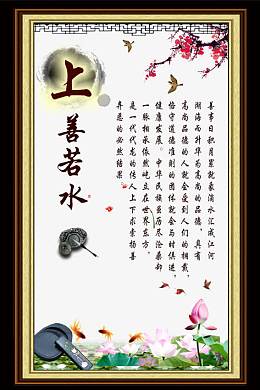 上善若水
善事日积月累就象滴水汇成江河
湖海而升华为高尚的品德，具有
高尚品德的人就会受到人们的相戴，
恪守道德准则的团体就会与时俱进，
健康发展。中华民族虽历尽沧桑却
一脉相承依然屹立在世界东方。
是一代代龙的传人上下求索扬善
弃恶的必然结果